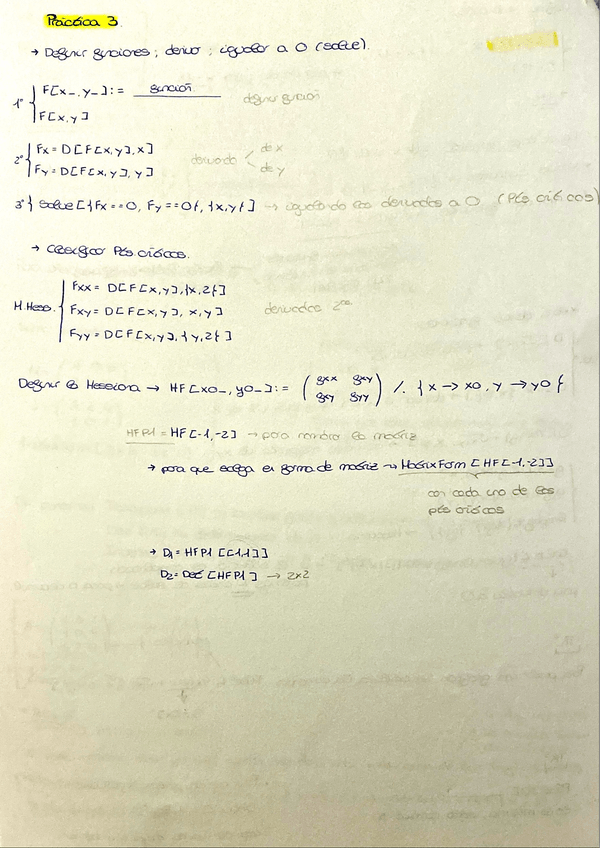 Práctica 3.
→ Definir funciones ; derivo ; igualar a 0 (solve).
1º { F[x_, y_] := función definir función
F[x,y]
2º { Fx = D[F[x,y],x] derivada < de x
Fy = D[F[x,y],y] de y
3º } Solve[{Fx==0, Fy==0}, {x,y}] → igualando las derivadas a 0 (ptos críticos)
→ Clasificar Ptos críticos.
M.Hess. { Fxx = D[F[x,y],{x,2}]
Fxy = D[F[x,y], x,y] derivadas 2ªs
Fyy = D[F[x,y],{y,2}]
Definir la Hessiana → HF[x0_, y0_] := ( fxx fxy
fxy fyy ) /. {x → x0, y → y0}
HFP1 = HF[-1,-2] → para nombrar la matriz
→ para que salga en forma de matriz → MatrixForm[HF[-1,-2]]
con cada uno de los
ptos críticos
→ D1 = HFP1[[1,1]]
D2 = Det[HFP1] → 2x2